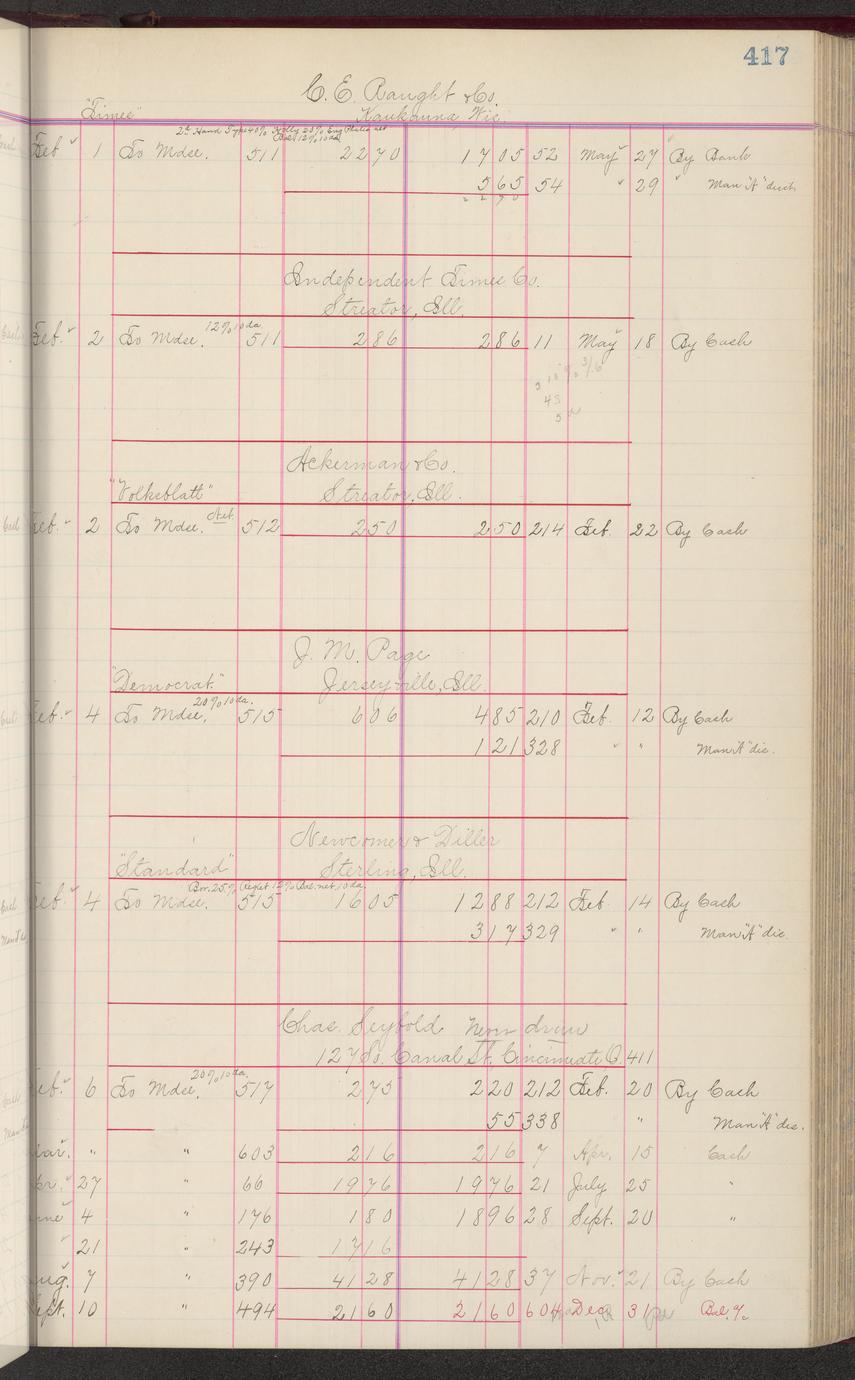 417
C. E. Raught & Co.
"Times" Kaukauna, Wis.
2d Hand Type 40% Holly 20% Eng
Bal 12% 10 da
Feb 1 To Mdse. 511 22 70 17 05 52 May 27 By Bank
5 65 54 " 29 " Man "A" disct
22 70
Independent Times Co.
Streator, Ill.
12% 10 da
Feb. 2 To Mdse. 511 2 86 2 86 11 May 18 By Cash
Ackerman & Co.
"Volksblatt" Streator, Ill.
Feb. 2 To Mdse. Net 512 2 50 2 50 214 Feb. 22 By Cash
J. M. Page
"Democrat" Jerseyville, Ill.
20% 10 da.
Feb. 4 To Mdse. 515 6 06 4 85 210 Feb. 12 By Cash
1 21 328 " " Man "A" dis.
Newcomer & Diller
"Standard" Sterling, Ill.
Bor. 25% Reglet 12% Bal. net. 10 da.
Feb. 4 To Mdse. 515 16 05 12 88 212 Feb. 14 By Cash
3 17 329 " " Man "A" dis.
Chas. Seybold
127 So. Canal St. Cincinnati, O. 411
20% 10 da.
Feb. 6 To Mdse. 517 2 75 2 20 212 Feb. 20 By Cash
55 338 " Man "A" dis.
Mar. " " 603 2 16 2 16 7 Apr. 15 Cash
Apr. 27 " 66 19 76 19 76 21 July 25 "
June 4 " 176 1 80 18 96 28 Sept. 20 "
" 21 " 243 17 16
Aug. 7 " 390 41 28 41 28 37 Nov. 21 By Cash
Sept. 10 " 494 21 60 21 60 604 Dec 31 Bal. %